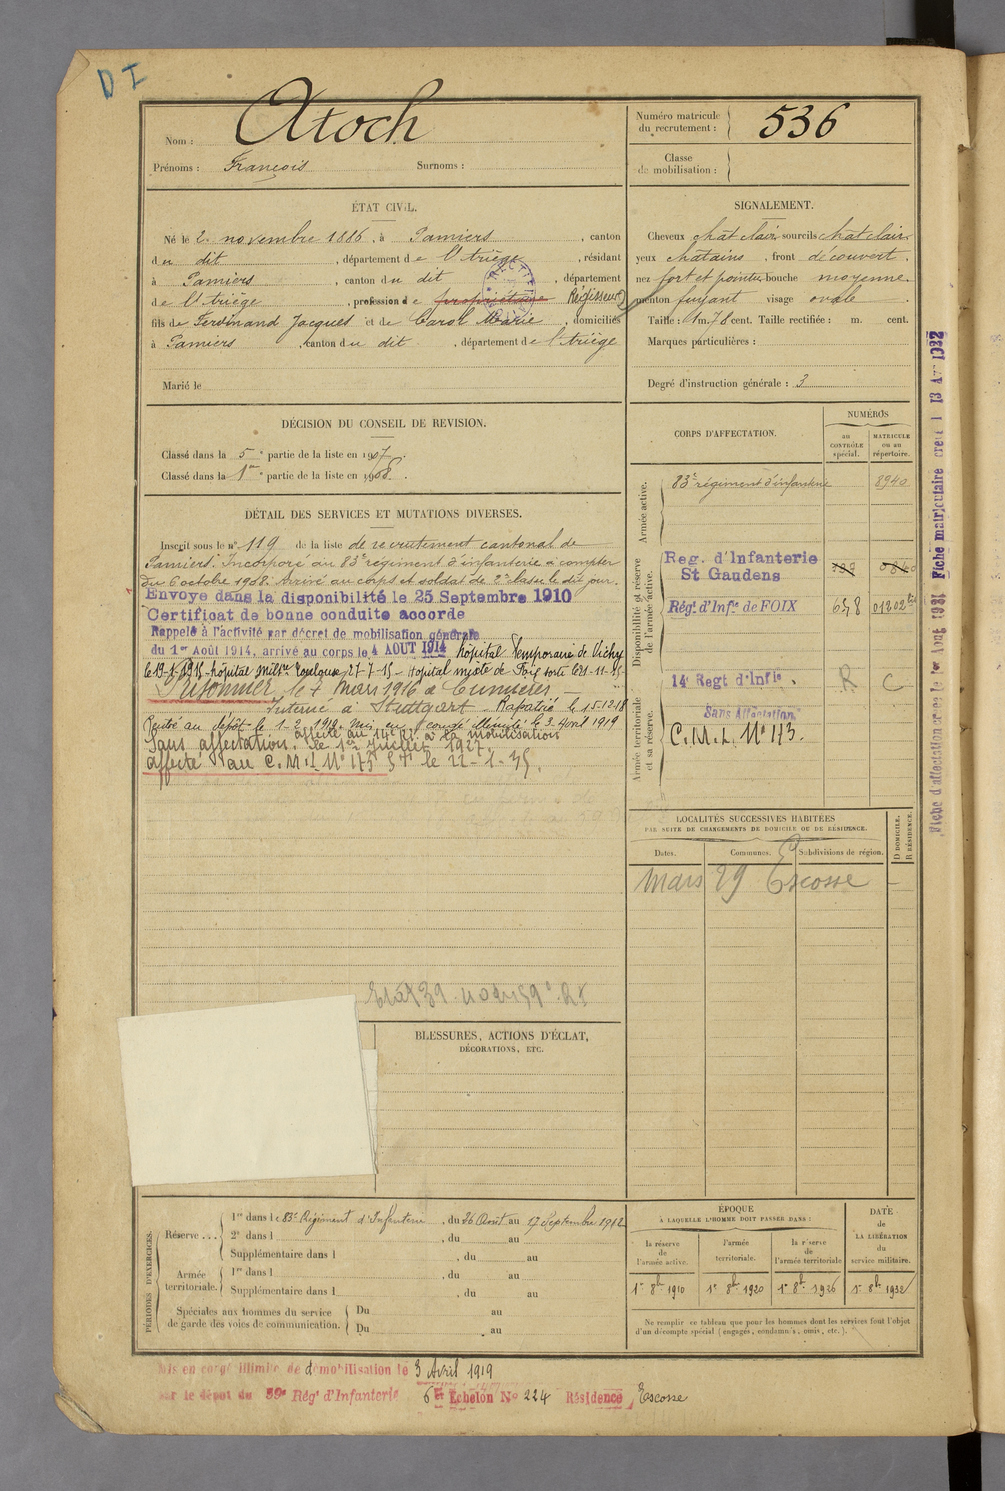 D I
Nom : Atoch
Prénoms : François Surnoms :
Numéro matricule
du recrutement : 536
Classe
de mobilisation :
ÉTAT CIVIL.
Né le 2 novembre 1886, à Pamiers, canton
du dit, département de l'Ariège, résidant
à Pamiers, canton du dit, département
de l'Ariège, profession de propriétaire Régisseur
fils de Ferdinand Jacques et de Carol Marie, domiciliés
à Pamiers, canton du dit, département de l'Ariège
Marié le
SIGNALEMENT.
Cheveux chat clair sourcils chat clair
yeux chatains, front découvert,
nez fort et pointu bouche moyenne
menton fuyant visage ovale.
Taille : 1 m. 78 cent. Taille rectifiée : m. cent.
Marques particulières :
Degré d'instruction générale : 3
DÉCISION DU CONSEIL DE REVISION.
Classé dans la 5e partie de la liste en 1907.
Classé dans la 1re partie de la liste en 1908.
DÉTAIL DES SERVICES ET MUTATIONS DIVERSES.
Inscrit sous le n° 119 de la liste de recrutement cantonal de
Pamiers. Incorporé au 83e régiment d'infanterie à compter
du 6 octobre 1908. Arrivé au corps et soldat de 2e classe le dit jour.
Envoyé dans la disponibilité le 25 Septembre 1910
Certificat de bonne conduite accordé
Rappelé à l'activité par décret de mobilisation générale
du 1er Août 1914, arrivé au corps le 4 AOUT 1914 hôpital Temporaire de Vichy
hôpital Toulouse 27-7-15 - hôpital mixte de Foix sorti le 21-11-15
Prisonnier le 7 Mars 1916 à Cumières -
Interné à Stuttgart - Rapatrié le 15.12.18
Rentré au dépôt le 1-2-1919. Mis en congé illimité le 3 Avril 1919
affecté au 14e RI à la mobilisation
Sans affectation. le 1er Juillet 1927.
affecté au C.M.I. N° 173 le 22-1-35.
CORPS D'AFFECTATION.
NUMÉROS
au
CONTRÔLE
spécial.
MATRICULE
ou au
répertoire.
Armée active.
83e régiment d'infanterie 8940
Disponibilité et réserve
de l'armée active.
Reg. d'Infanterie
St Gaudens
Régt. d'Infie de FOIX 658
14e Regt d'Infie. R C
Armée territoriale
et sa réserve.
Sans Affectation
C.M.I. N° 173.
LOCALITÉS SUCCESSIVES HABITÉES
PAR SUITE DE CHANGEMENTS DE DOMICILE OU DE RÉSIDENCE.
Dates. Communes. Subdivisions de région. D DOMICILE. R RÉSIDENCE.
Mars 29 Escosse -
BLESSURES, ACTIONS D'ÉCLAT,
DÉCORATIONS, ETC.
PÉRIODES D'EXERCICES.
Réserve ...
1re dans le 83e Régiment d'Infanterie, du 26 Août au 17 Septembre 1912
2e dans l , du au
Supplémentaire dans l , du au
Armée
territoriale.
1re dans l , du au
Supplémentaire dans l , du au
Spéciales aux hommes du service
de garde des voies de communication.
Du au
Du au
ÉPOQUE
À LAQUELLE L'HOMME DOIT PASSER DANS :
la réserve
de
l'armée active.
l'armée
territoriale.
la réserve
de
l'armée territoriale
DATE
de
LA LIBÉRATION
du
service militaire.
1er 8bre 1910 1er 8bre 1920 1er 8bre 1926 1er 8bre 1932
Ne remplir ce tableau que pour les hommes dont les services font l'objet
d'un décompte spécial (engagés, condamnés, omis, etc.).
Mis en congé illimité de démobilisation le 3 Avril 1919
par le dépôt du 59e Régt d'Infanterie 6e Echelon No 224 Résidence Escosse